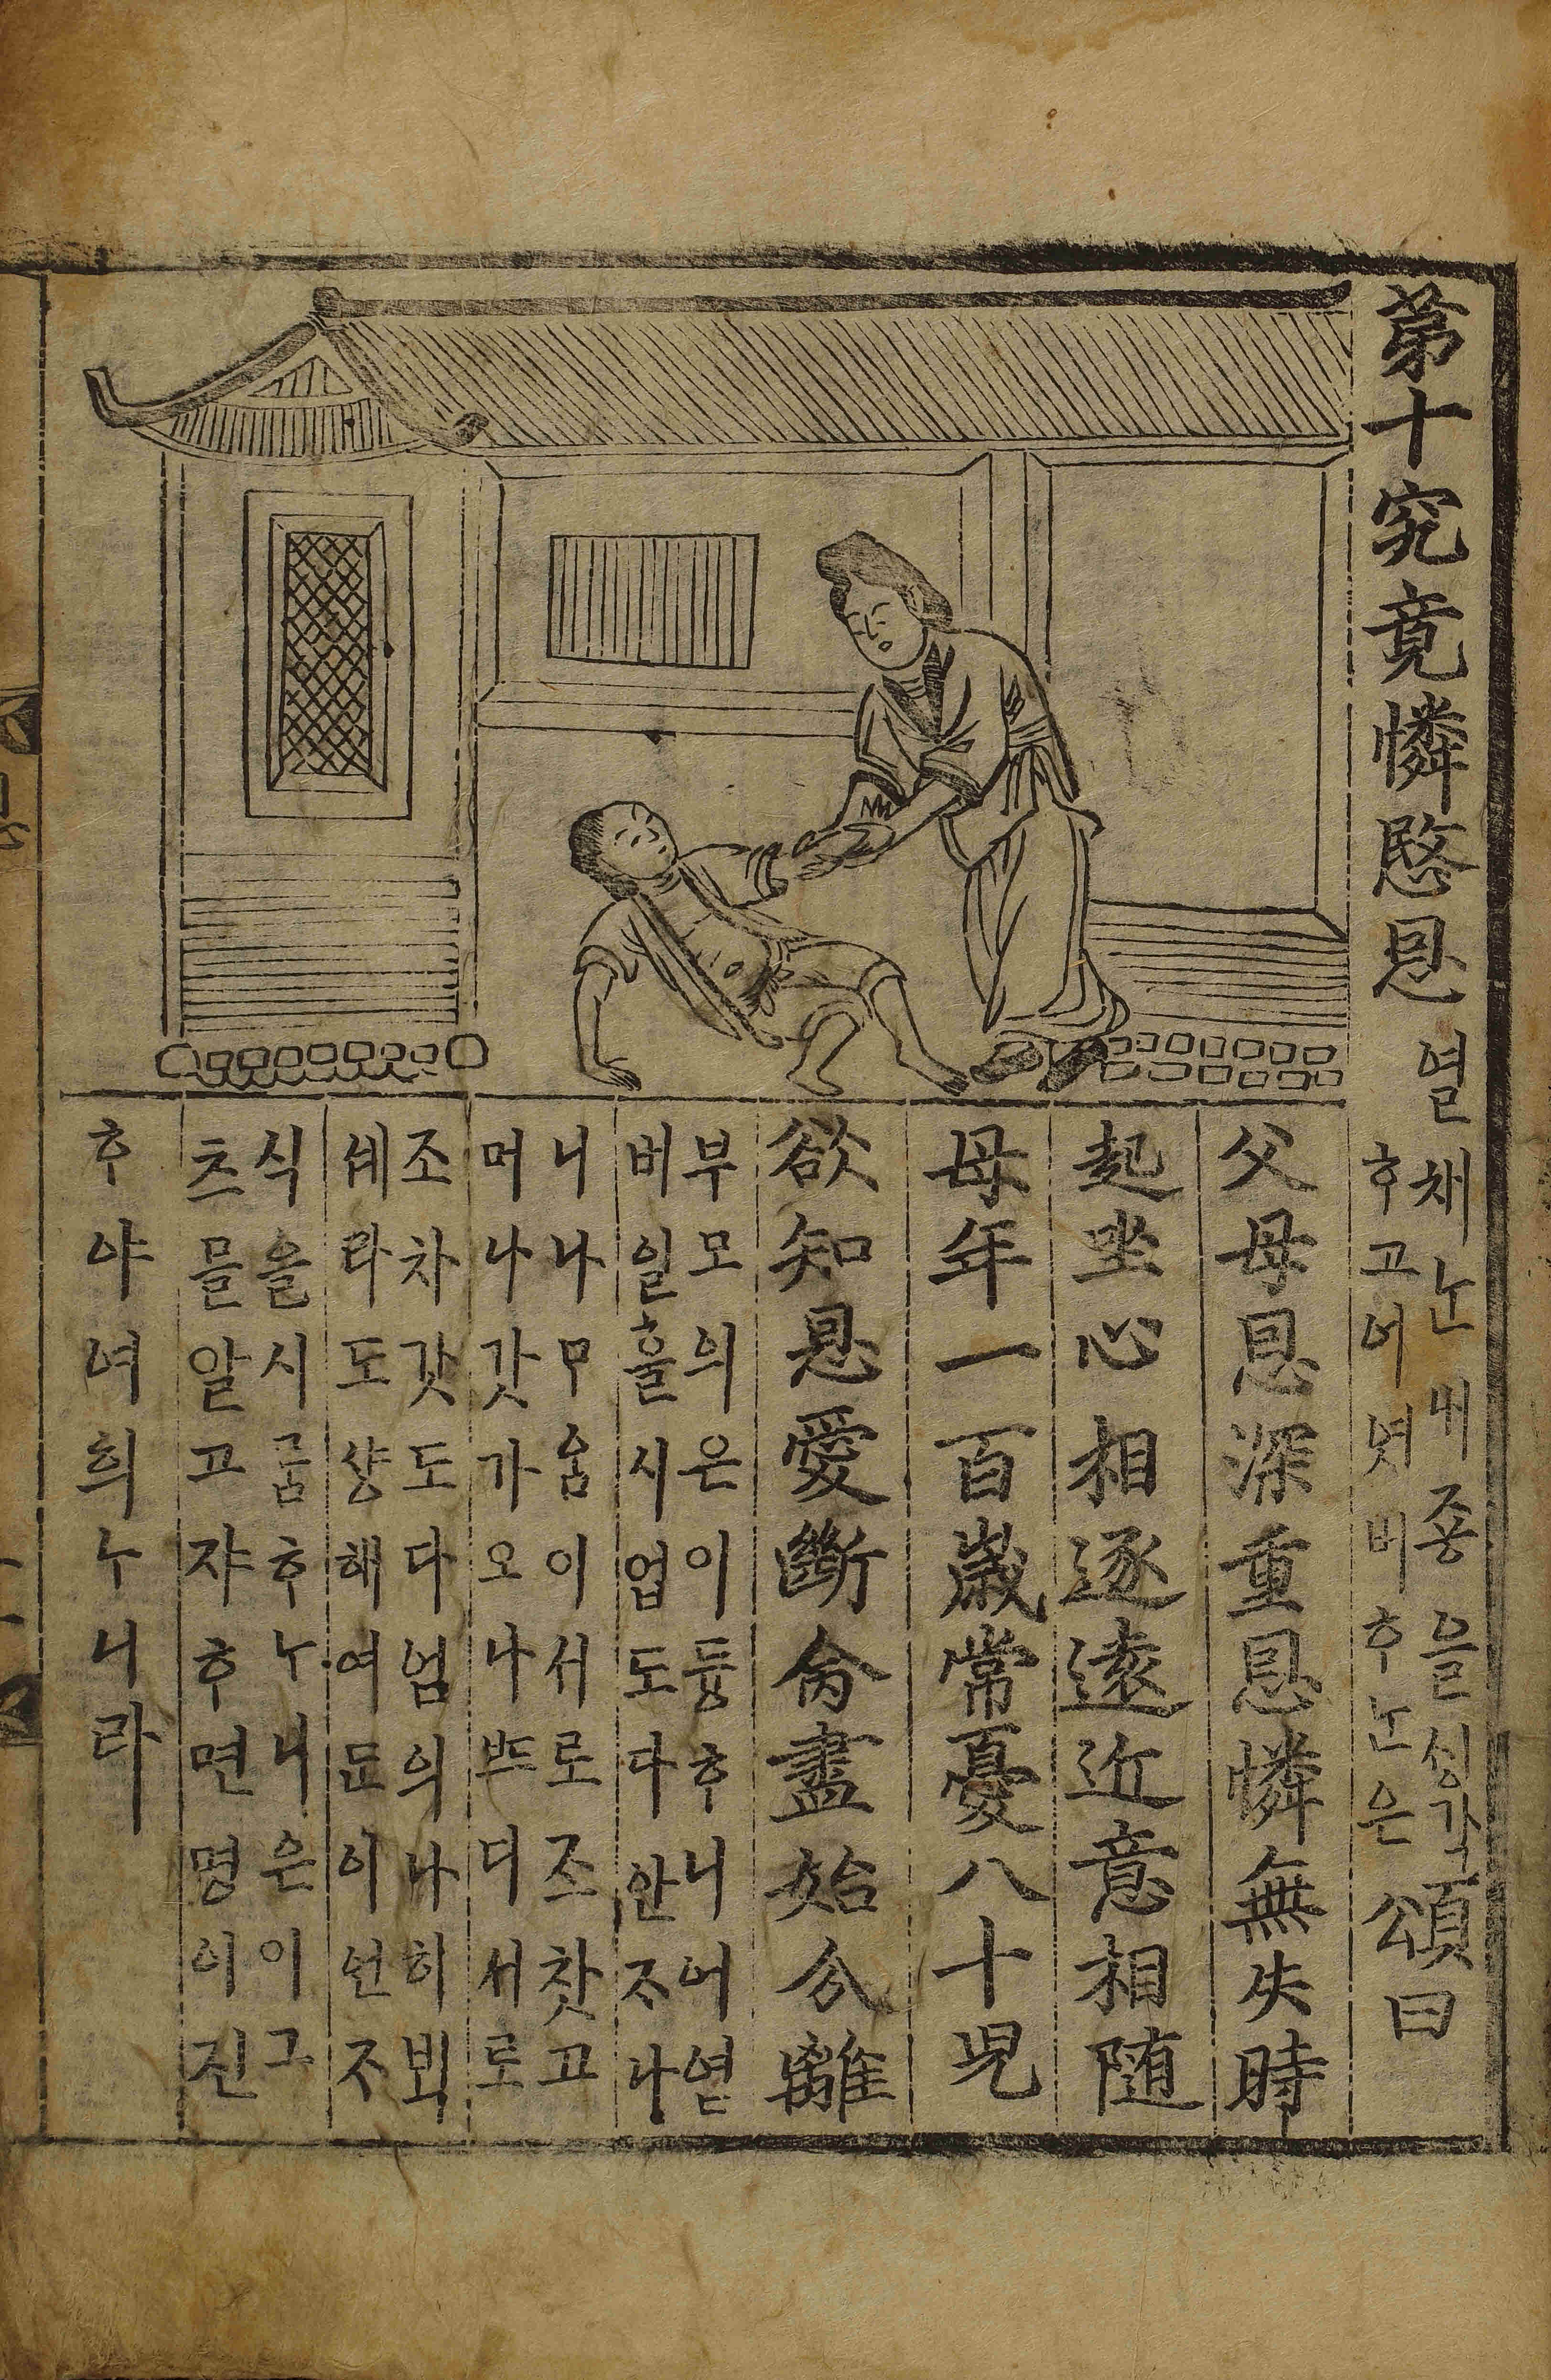 第十究竟憐愍恩
열채ᄂᆞᆫ내죵을ᄉᆡᆼ각
ᄒᆞ고어엿비ᄒᆞᄂᆞᆫ은
頌曰
父母恩深重恩憐無失時
起坐心相逐遠近意相随
母年一百歲常憂八十兒
欲知恩愛斷命盡始分離
부모의은이듕ᄒᆞ니어엿
버일ᄒᆞᆯ시업도다안ᄌᆞ나
니나ᄆᆞᄋᆞᆷ이서로조찻고
머나갓가오나ᄠᅳ디서로
조차갓도다엄의나히ᄇᆡᆨ
셰라도샹해여든이션ᄌᆞ
식을시름ᄒᆞᄂᆞ니은이그
츠믈알고쟈ᄒᆞ면명이진
ᄒᆞ야녀희ᄂᆞ니라